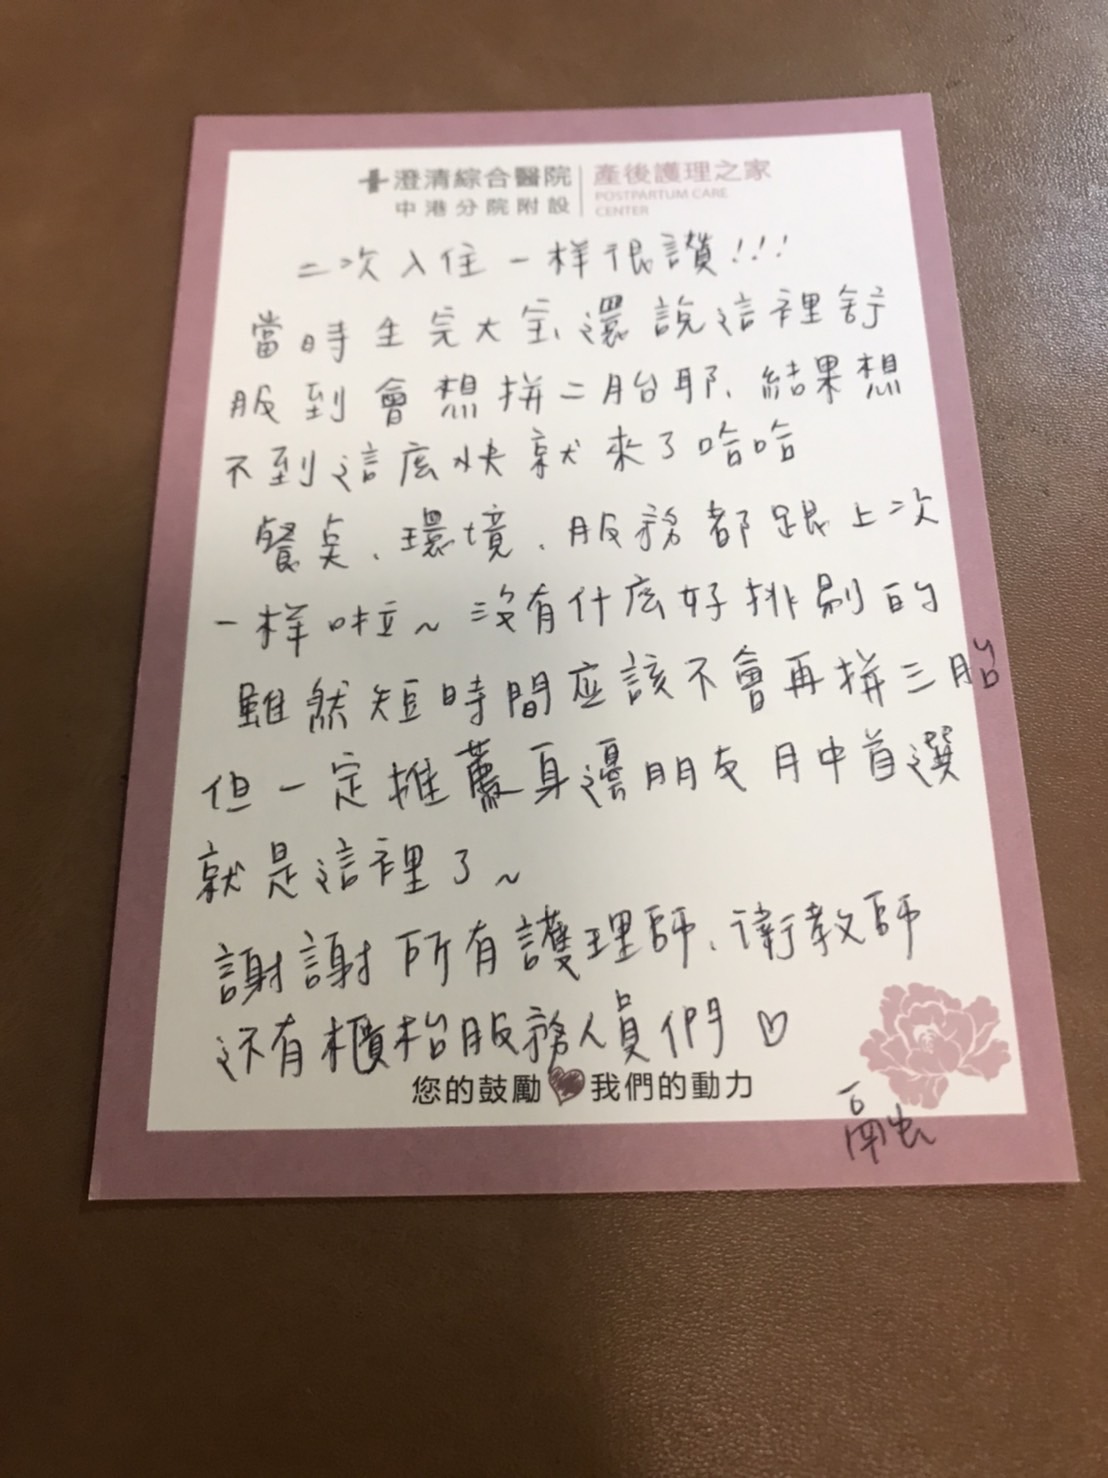 澄清綜合醫院
中港分院附設
產後護理之家
POSTPARTUM CARE
CENTER
二次入住一样很讚!!!
當時生完大宝、還說這裡舒
服到會想拼二胎耶、結果想
不到這庅快就來了哈哈
餐桌、環境、服務都跟上次
一样啦~沒有什庅好挑剔的
雖然短時間应該不會再拼三胎
但一定推薦身邊朋友月中首選
就是這裡了~
謝謝所有護理師、衛教師
还有櫃枱服務人員們♡
您的鼓勵 我們的動力